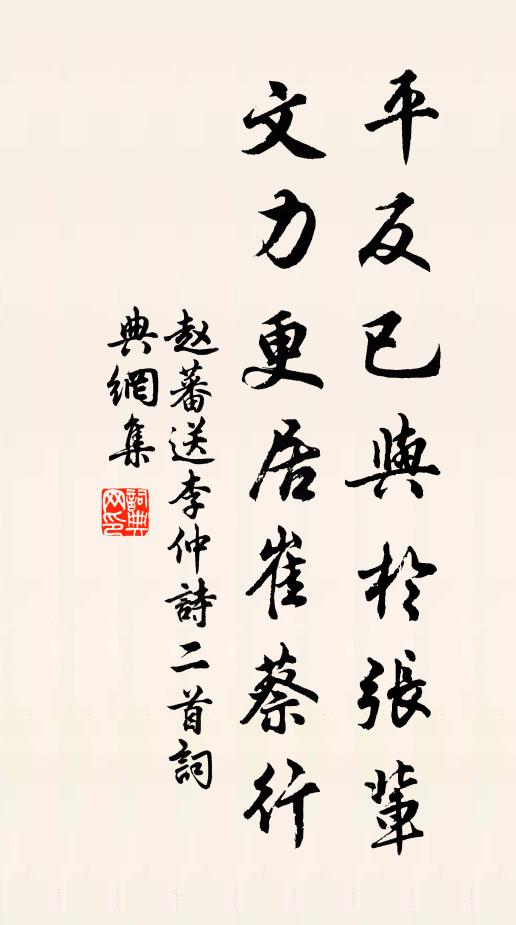 平反已與於張輩
文力更居崔蔡行
赵蕃送李仲詩二首詞
典網集
詞典網印